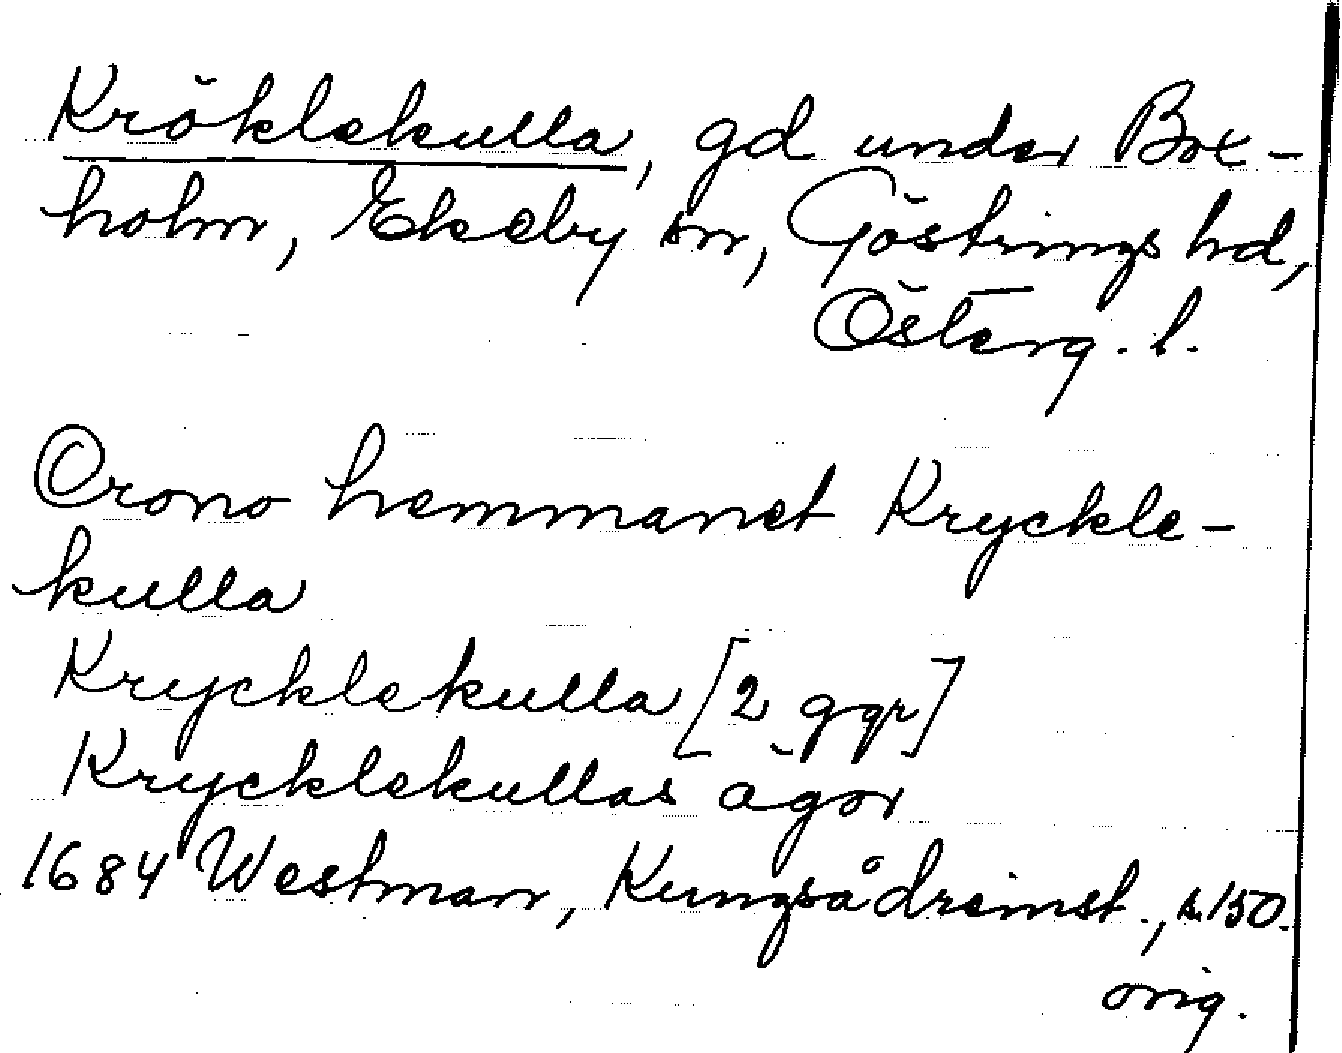 Kröklekulla, gd under Box-
holm, Ekeby sn, Göstrings hd,
Österg. l.
Crono hemmanet Kryckle-
kulla
Krycklekulla [2 ggr]
Krycklekullas ägor
1684 Westman, Kungsådreinst., s. 150.
orig.